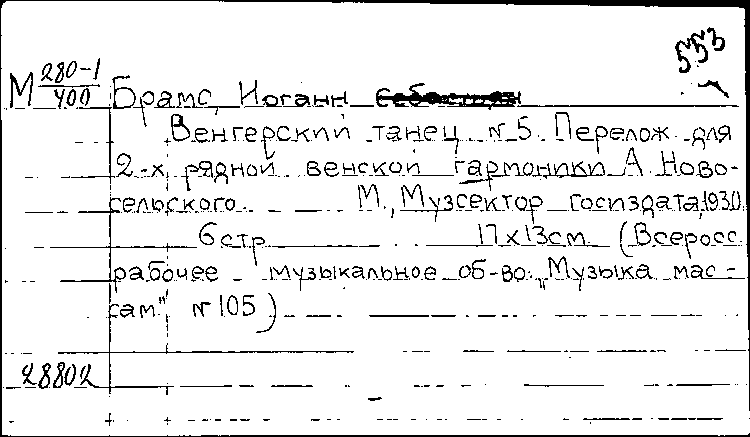 553
М 280-1/400 Брамс, Иоганн
Венгерский танец №5. Перелож. для
2-х рядной венской гармоники А. Ново-
сельского. М., Музсектор Госиздата, 1930.
6 стр. 17x13 см. (Всеросс.
рабочее музыкальное об-во „Музыка мас-
сам" №105)
28802